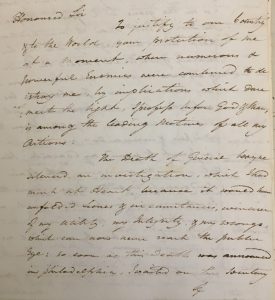 Honoured Sir
To justify to our Country
& to the World, your protection of me
at a Moment, when numerous &
powerful Enemies were combined to de
stroy me, by implications which dare
meet the light, I profess before God & Man,
is among the leading Motives of all my
Actions:
The Death of General Wayne
an investigation, which
much at Heart, because it would have
unfolded Scenes & Circumstances,
of my utility my Integrity & my wrongs,
which can now never reach the public
Eye: so soon as this Death was announced
in Philadelphia, I waited on the Secretary
of